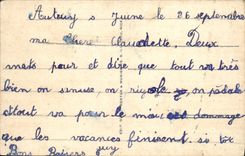 Autun s June le 26 septembre
ma Chere Claudette. Deux
mots pour et dire que tout va très
bien on s'muse on rigole on pédale
ettout va pour le mieux dommage
que les vacances finisent si tôt
Bons Baisers